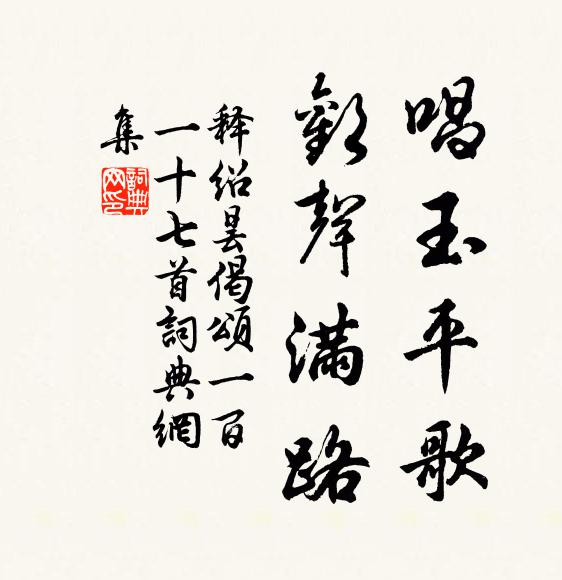 唱玉平歌
歡聲滿路
释紹昙偈頌一百
一十七首詞典網
集
詞典
网印